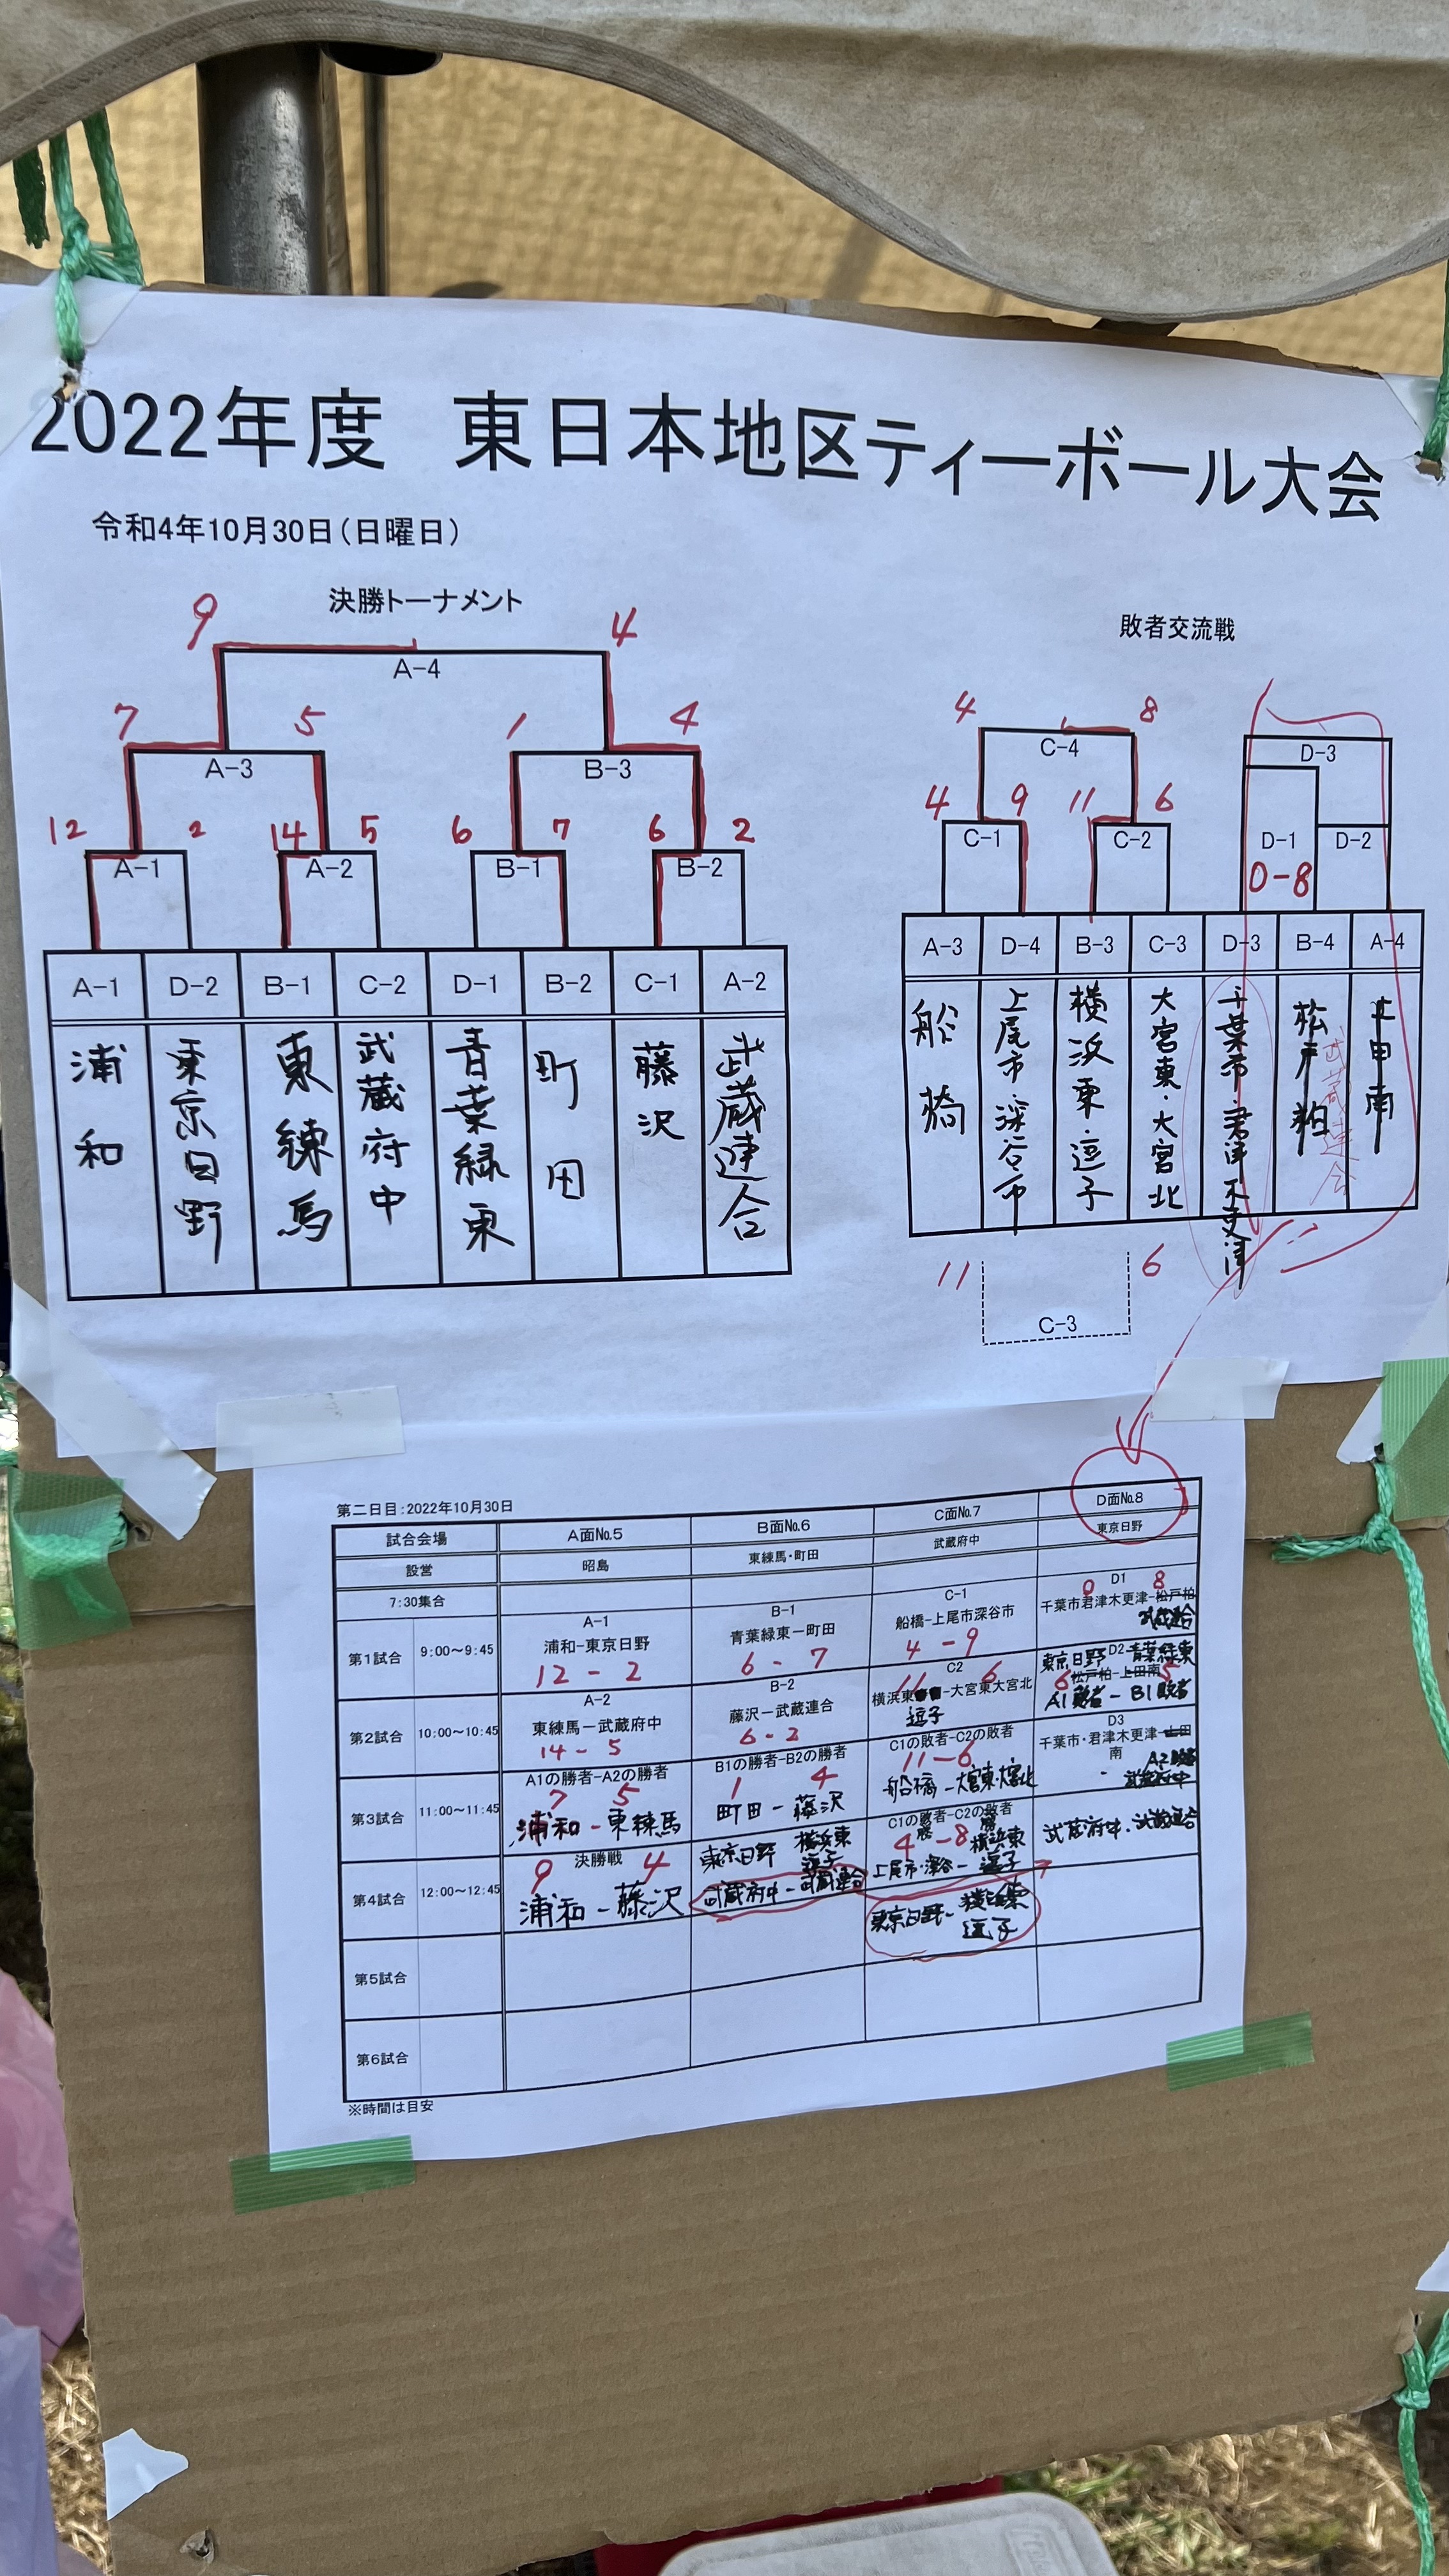 2022年度 東日本地区ティーボール大会
令和4年10月30日(日曜日)
決勝トーナメント
9 4
A-4
7 5 1 4
A-3 B-3
12 2 14 5 6 7 6 2
A-1 A-2 B-1 B-2
A-1 D-2 B-1 C-2 D-1 B-2 C-1 A-2
浦和
東京日野
東練馬
武蔵府中
青葉緑東
町田
藤沢
武蔵連合
敗者交流戦
4 8
C-4 D-3
4 9 11 6
C-1 C-2 D-1 D-2
0-8
A-3 D-4 B-3 C-3 D-3 B-4 A-4
船橋
上尾市・深谷市
横浜東・逗子
大宮東・大宮北
千葉市・君津木更津
松戸柏
武蔵連合
11 6
C-3
第二日目:2022年10月30日
試合会場 A面No.5 B面No.6 C面No.7 D面No.8
設営 昭島 東練馬・町田 武蔵府中 東京日野
7:30集合
第1試合 9:00～9:45
A-1
浦和-東京日野
12 - 2
B-1
青葉緑東ー町田
6 - 7
C-1
船橋-上尾市深谷市
4 - 9
D1
0 8
千葉市君津木更津-松戸柏
武蔵連合
第2試合 10:00～10:45
A-2
東練馬ー武蔵府中
14 - 5
B-2
藤沢ー武蔵連合
6 - 2
C2
11 6
横浜東 -大宮東大宮北
逗子
東京日野 D2 青葉緑東
6 松戸柏-上田南 5
A1敗者-B1敗者
第3試合 11:00～11:45
A1の勝者-A2の勝者
7 5
浦和-東練馬
B1の勝者-B2の勝者
1 4
町田-藤沢
C1の敗者-C2の敗者
11-6
船橋-大宮東・大宮北
D3
千葉市・君津木更津-上田
南 A2敗者
武蔵府中
第4試合 12:00～12:45
決勝戦
9 4
浦和-藤沢
東京日野 横浜東
逗子
武蔵府中-武蔵連合
C1の敗者-C2の敗者
勝 勝
4 -8 横浜東
上尾市・深谷- 逗子
東京日野- 横浜東
逗子
武蔵府中・武蔵連合
第5試合
第6試合
※時間は目安